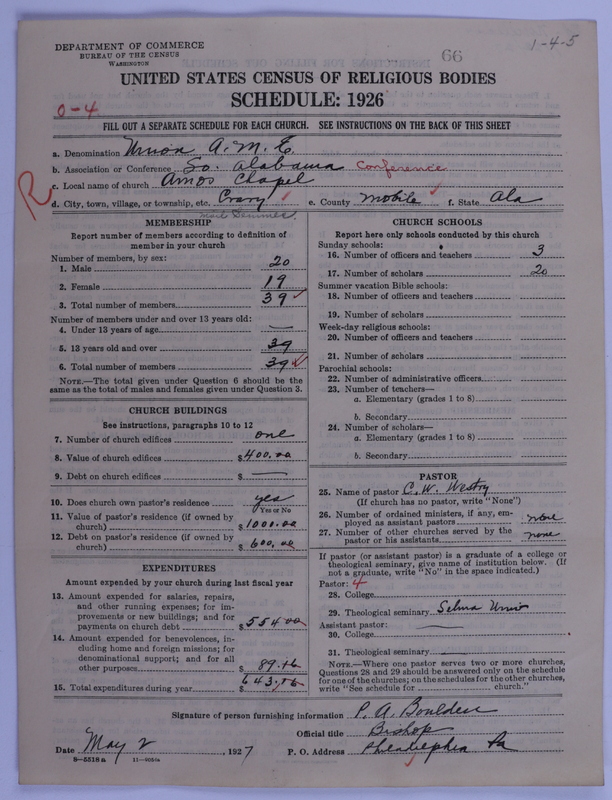 DEPARTMENT OF COMMERCE
BUREAU OF THE CENSUS
WASHINGTON
66
1-4-5
UNITED STATES CENSUS OF RELIGIOUS BODIES
SCHEDULE: 1926
0-4
FILL OUT A SEPARATE SCHEDULE FOR EACH CHURCH. SEE INSTRUCTIONS ON THE BACK OF THIS SHEET
a. Denomination Union A. M. E.
b. Association or Conference So. Alabama Conference
c. Local name of church Amos Chapel
R
d. City, town, village, or township, etc. Crary e. County Mobile f. State Ala
MEMBERSHIP
Report number of members according to definition of member in your church
Number of members, by sex:
1. Male 20
2. Female 19
3. Total number of members 39
Number of members under and over 13 years old:
4. Under 13 years of age —
5. 13 years old and over 39
6. Total number of members 39
NOTE.—The total given under Question 6 should be the same as the total of males and females given under Question 3.
CHURCH BUILDINGS
See instructions, paragraphs 10 to 12
7. Number of church edifices one
8. Value of church edifices $400.00
9. Debt on church edifices $ —
10. Does church own pastor's residence yes
Yes or No
11. Value of pastor's residence (if owned by church) $1000.00
12. Debt on pastor's residence (if owned by church) $600.00
EXPENDITURES
Amount expended by your church during last fiscal year
13. Amount expended for salaries, repairs, and other running expenses; for improvements or new buildings; and for payments on church debt $554 00
14. Amount expended for benevolences, including home and foreign missions; for denominational support; and for all other purposes $89.16
15. Total expenditures during year $643.16
CHURCH SCHOOLS
Report here only schools conducted by this church
Sunday schools:
16. Number of officers and teachers 3
17. Number of scholars 20
Summer vacation Bible schools:
18. Number of officers and teachers
19. Number of scholars
Week-day religious schools:
20. Number of officers and teachers
21. Number of scholars
Parochial schools:
22. Number of administrative officers
23. Number of teachers—
a. Elementary (grades 1 to 8)
b. Secondary
24. Number of scholars—
a. Elementary (grades 1 to 8)
b. Secondary
PASTOR
25. Name of pastor C. W. Westry
(If church has no pastor, write "None")
26. Number of ordained ministers, if any, employed as assistant pastors none
27. Number of other churches served by the pastor or his assistants none
If pastor (or assistant pastor) is a graduate of a college or theological seminary, give name of institution below. (If not a graduate, write "No" in the space indicated.)
Pastor: 4
28. College
29. Theological seminary Selma Univ
Assistant pastor:
30. College
31. Theological seminary
NOTE.—Where one pastor serves two or more churches, Questions 28 and 29 should be answered only on the schedule for one of the churches; on the schedules for the other churches, write "See schedule for church."
Signature of person furnishing information P. A. Boulden
Official title Bishop
Date May 2, 1927 P. O. Address Pheladephia Pa
8—5518 a